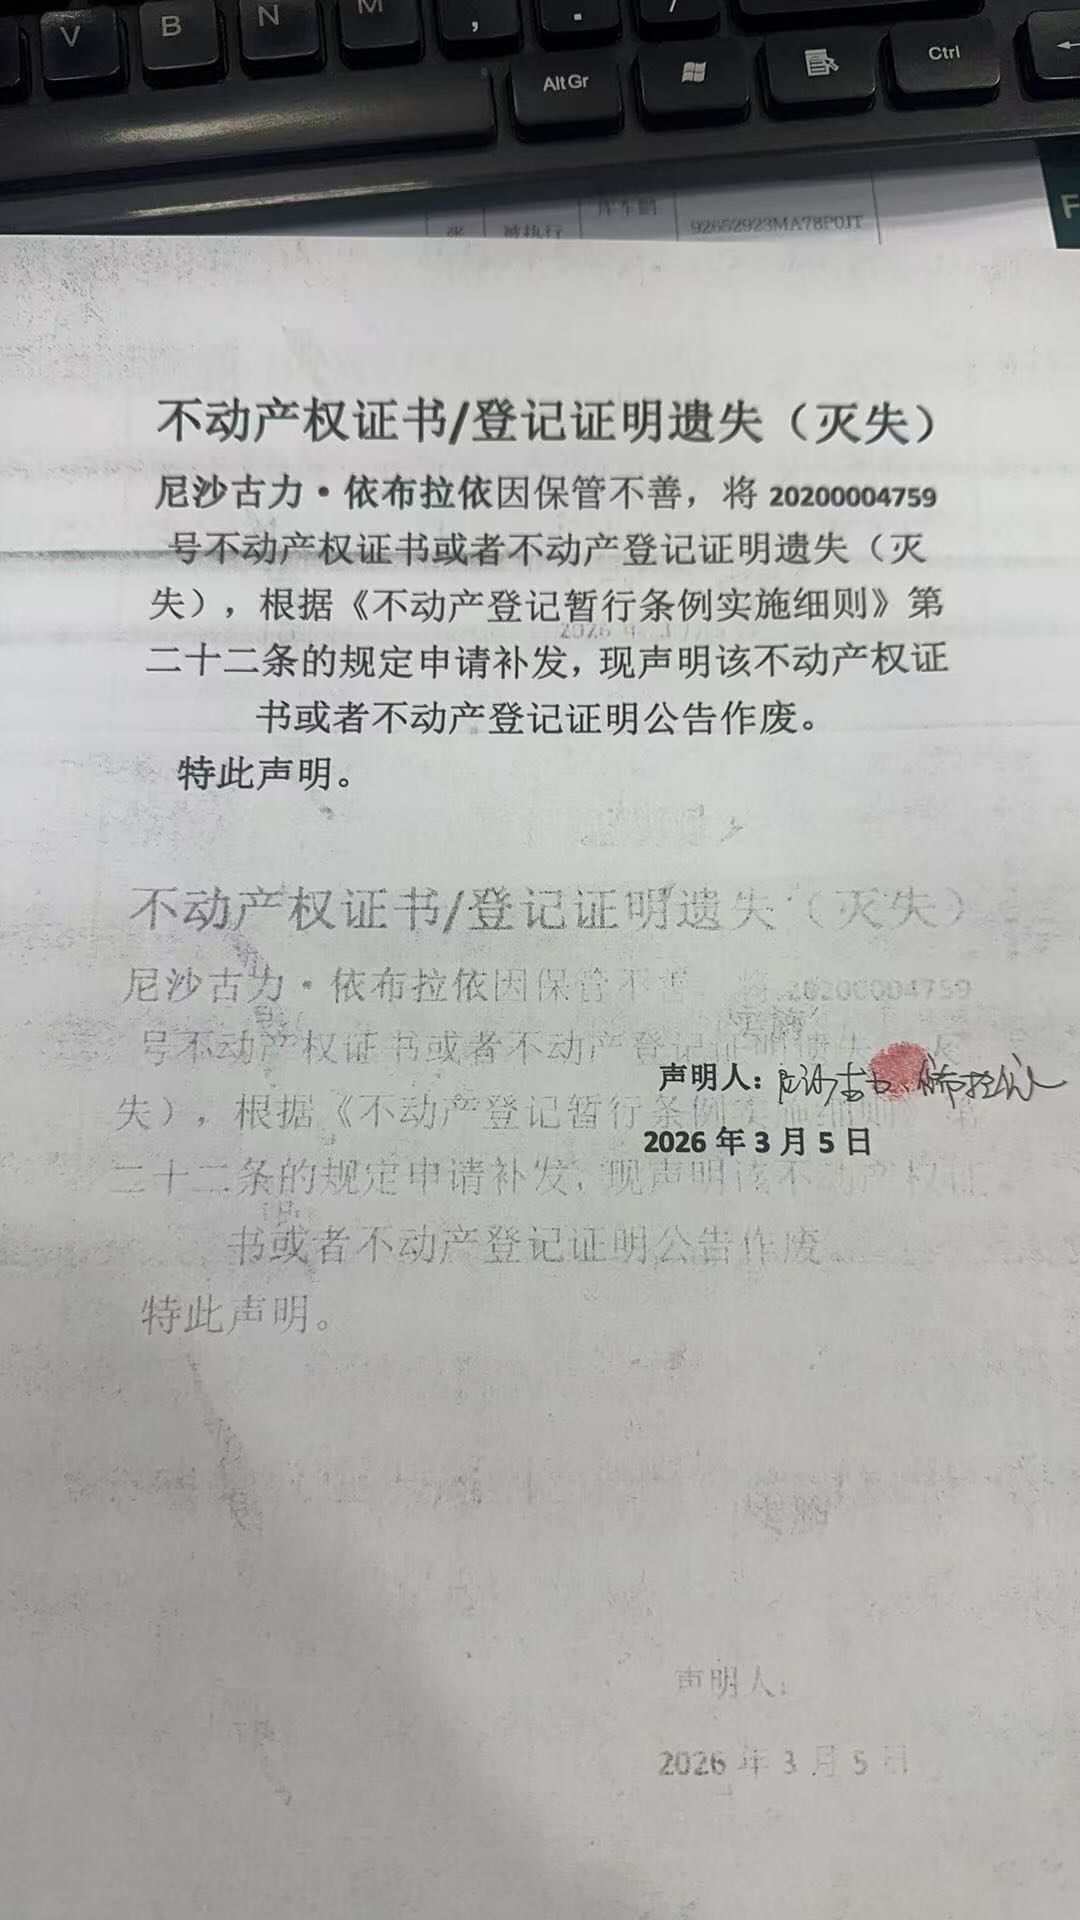 V
B
N
M
,
.
/
Alt Gr
Ctrl
F
张
被执行
库车鹏
92652923MA78P0JT
不动产权证书/登记证明遗失（灭失）
尼沙古力·依布拉依因保管不善，将 20200004759
号不动产权证书或者不动产登记证明遗失（灭
失），根据《不动产登记暂行条例实施细则》第
二十二条的规定申请补发，现声明该不动产权证
书或者不动产登记证明公告作废。
特此声明。
不动产权证书/登记证明遗失（灭失）
尼沙古力·依布拉依因保管不善 将 20200004759
号不动产权证书或者不动产登记证明遗失 灭
声明人：尼沙古力·依布拉依
失），根据《不动产登记暂行条例实施细则 第
2026 年 3 月 5 日
二十二条的规定申请补发，现声明该不动产权证
书或者不动产登记证明公告作废
特此声明。
声明人：
2026 年 3 月 5 日